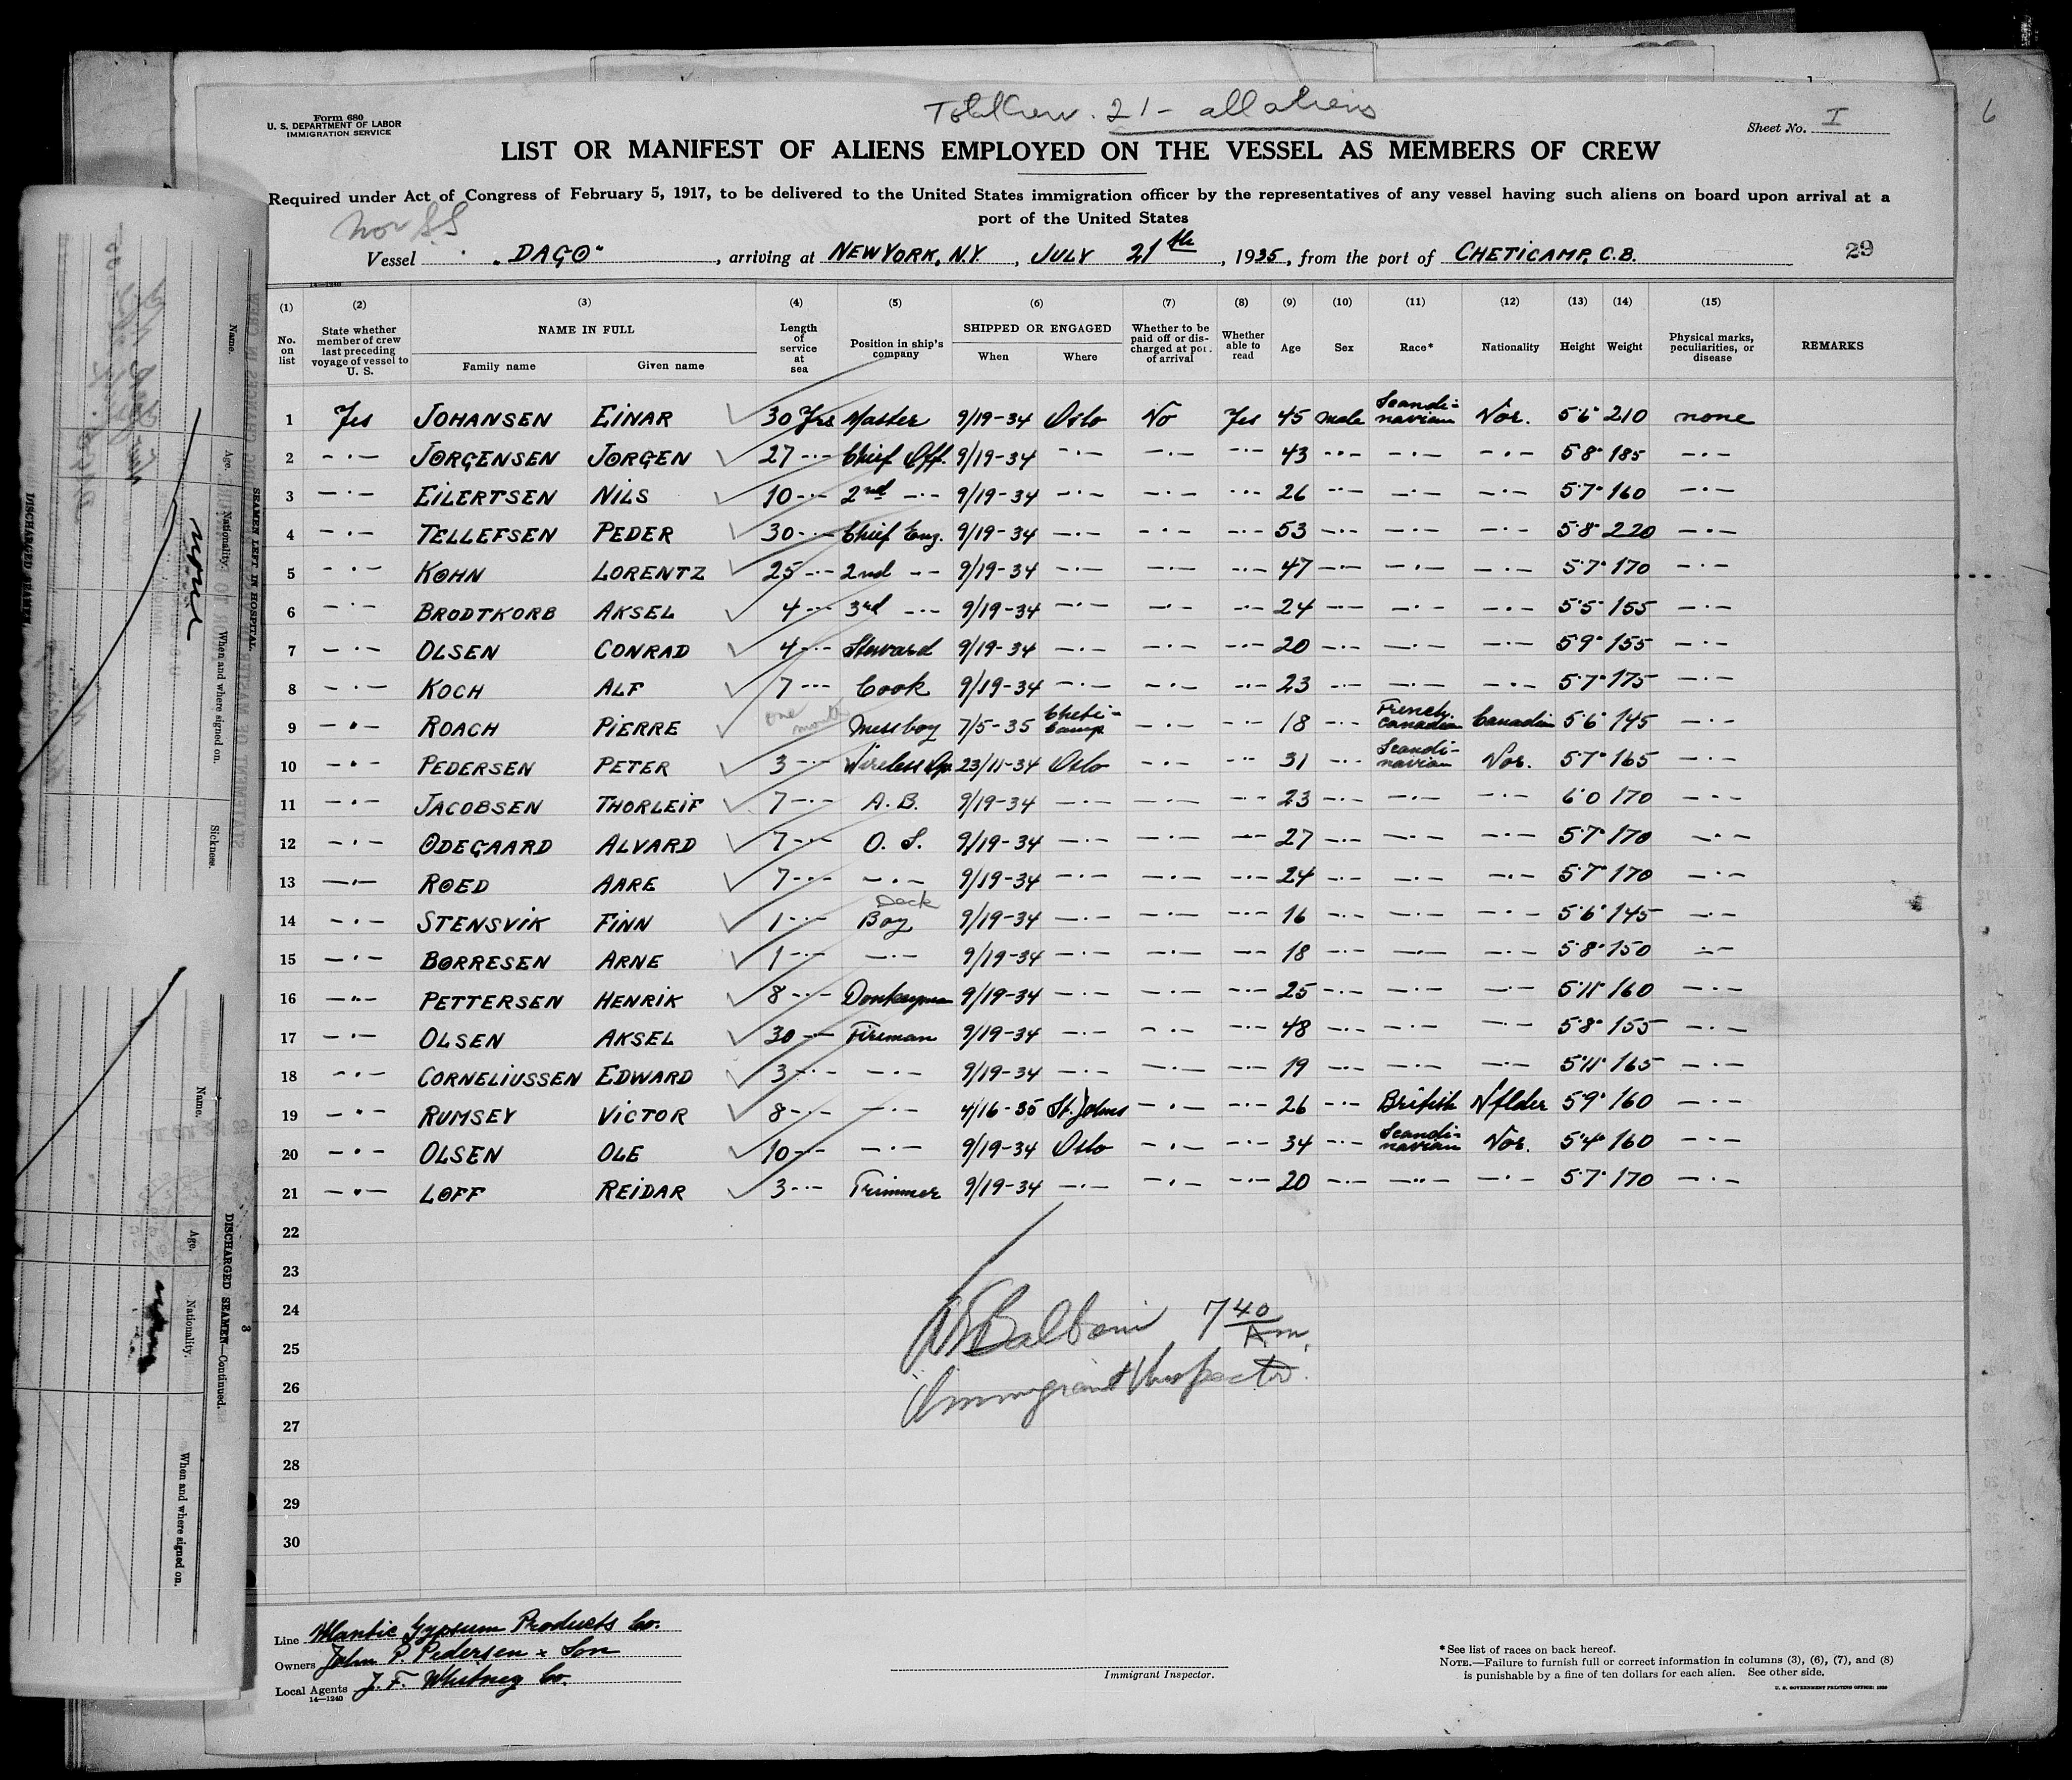 Total Crew. 21 - all aliens
Form 680
U. S. DEPARTMENT OF LABOR
IMMIGRATION SERVICE
Sheet No. I
6
LIST OR MANIFEST OF ALIENS EMPLOYED ON THE VESSEL AS MEMBERS OF CREW
Required under Act of Congress of February 5, 1917, to be delivered to the United States immigration officer by the representatives of any vessel having such aliens on board upon arrival at a
port of the United States
Nor SS
Vessel "DAGØ", arriving at NEW YORK, N.Y., JULY 21th, 1935, from the port of CHETICAMP, C.B. 29
(1) (2) (3) (4) (5) (6) (7) (8) (9) (10) (11) (12) (13) (14) (15)
No. on list State whether member of crew last preceding voyage of vessel to U. S. NAME IN FULL Family name Given name Length of service at sea Position in ship's company SHIPPED OR ENGAGED When Where Whether to be paid off or discharged at port of arrival Whether able to read Age Sex Race* Nationality Height Weight Physical marks, peculiarities, or disease REMARKS
1 Yes JOHANSEN EINAR ✓ 30 Yrs Master 9/19-34 Oslo No Yes 45 male Scandi-navian Nor. 5'6" 210 none
2 -·- JØRGENSEN JØRGEN ✓ 27 -·- Chief Off. 9/19-34 -·- -·- -·- 43 -·- -·- -·- 5'8" 185 -·-
3 -·- EILERTSEN NILS ✓ 10 -·- 2nd -·- 9/19-34 -·- -·- -·- 26 -·- -·- -·- 5'7" 160 -·-
4 -·- TELLEFSEN PEDER ✓ 30 -·- Chief Eng. 9/19-34 -·- -·- -·- 53 -·- -·- -·- 5'8" 220 -·-
5 -·- KØHN LORENTZ ✓ 25 -·- 2nd -·- 9/19-34 -·- -·- -·- 47 -·- -·- -·- 5'7" 170 -·-
6 -·- BRODTKORB AKSEL ✓ 4 -·- 3rd -·- 9/19-34 -·- -·- -·- 24 -·- -·- -·- 5'5" 155 -·-
7 -·- OLSEN CONRAD ✓ 4 -·- Steward 9/19-34 -·- -·- -·- 20 -·- -·- -·- 5'9" 155 -·-
8 -·- KOCH ALF ✓ 7 -·- Cook 9/19-34 -·- -·- -·- 23 -·- -·- -·- 5'7" 175 -·-
9 -·- ROACH PIERRE ✓ one month Messboy 7/5-35 Cheti-camp -·- -·- 18 -·- French Canadian Canadian 5'6" 145 -·-
10 -·- PEDERSEN PETER ✓ 3 -·- Wireless Op. 23/11-34 Oslo -·- -·- 31 -·- Scandi-navian Nor. 5'7" 165 -·-
11 -·- JACOBSEN THORLEIF ✓ 7 -·- A. B. 9/19-34 -·- -·- -·- 23 -·- -·- -·- 6'0 170 -·-
12 -·- ØDEGAARD ALVARD ✓ 7 -·- O. S. 9/19-34 -·- -·- -·- 27 -·- -·- -·- 5'7" 170 -·-
13 -·- RØED AARE ✓ 7 -·- -·- 9/19-34 -·- -·- -·- 24 -·- -·- -·- 5'7" 170 -·-
14 -·- STENSVIK FINN ✓ 1 -·- Deck Boy 9/19-34 -·- -·- -·- 16 -·- -·- -·- 5'6" 145 -·-
15 -·- BØRRESEN ARNE ✓ 1 -·- -·- 9/19-34 -·- -·- -·- 18 -·- -·- -·- 5'8" 150 -·-
16 -·- PETTERSEN HENRIK ✓ 8 -·- Donkeyman 9/19-34 -·- -·- -·- 25 -·- -·- -·- 5'11" 160 -·-
17 -·- OLSEN AKSEL ✓ 30 -·- Fireman 9/19-34 -·- -·- -·- 48 -·- -·- -·- 5'8" 155 -·-
18 -·- CORNELIUSSEN EDWARD ✓ 3 -·- -·- 9/19-34 -·- -·- -·- 19 -·- -·- -·- 5'11" 165 -·-
19 -·- RUMSEY VICTOR ✓ 8 -·- -·- 4/16-35 St. Johns -·- -·- 26 -·- British Nflder 5'9" 160 -·-
20 -·- OLSEN OLE ✓ 10 -·- -·- 9/19-34 Oslo -·- -·- 34 -·- Scandi-navian Nor. 5'4" 160 -·-
21 -·- LØFF REIDAR ✓ 3 -·- Trimmer 9/19-34 -·- -·- -·- 20 -·- -·- -·- 5'7" 170 -·-
22
23
24
25
26
27
28
29
30
7 40 Am.
Immigrant Inspector.
Line Atlantic Gypsum Products Co.
Owners John P. Pedersen & Son
Local Agents J. F. Whitney Co.
14—1240
Immigrant Inspector.
*See list of races on back hereof.
NOTE.—Failure to furnish full or correct information in columns (3), (6), (7), and (8)
is punishable by a fine of ten dollars for each alien. See other side.
U. S. GOVERNMENT PRINTING OFFICE: 1930
SEAMEN LEFT IN HOSPITAL
Name. Age. Nationality. When and where signed on. Sickness.
none
DISCHARGED SEAMEN—Continued.
Name. Age. Nationality. When and where signed on.
none
3